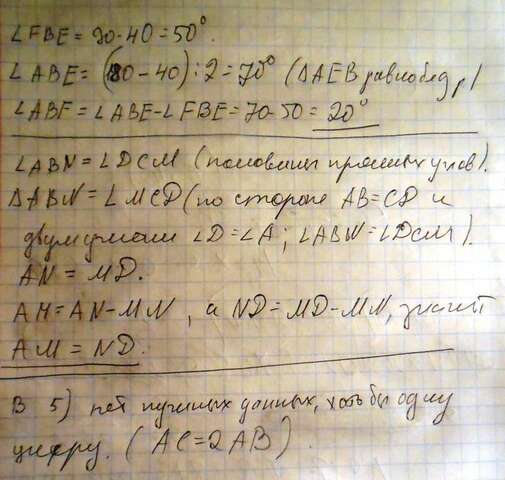 ∠FBE = 90-40 = 50°.
∠ABE = (180-40):2 = 70° (ΔAEB равнобедр)
∠ABF = ∠ABE-∠FBE = 70-50 = 20°
∠ABN = ∠DCM (половины прямых углов).
ΔABN = ∠MCD (по стороне AB=CD и
двум углам ∠D=∠A; ∠ABN=∠DCM).
AN = MD.
AM = AN-MN, а ND = MD-MN, значит
AM = ND.
В 5) нет нужных данных, хоть бы одну
цифру. (AC=2AB).